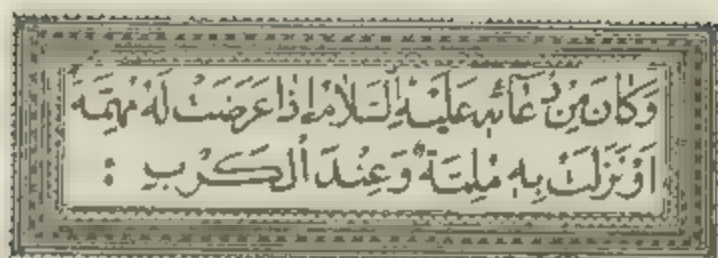 وَكَانَ مِنْ دُعَائِهِ عَلَيْهِ السَّلَامُ إِذَا عَرَضَتْ لَهُ مُهِمَّةٌ
اَوْ نَزَلَتْ بِهِ مُلِمَّةٌ وَعِنْدَ الْكَرْبِ :